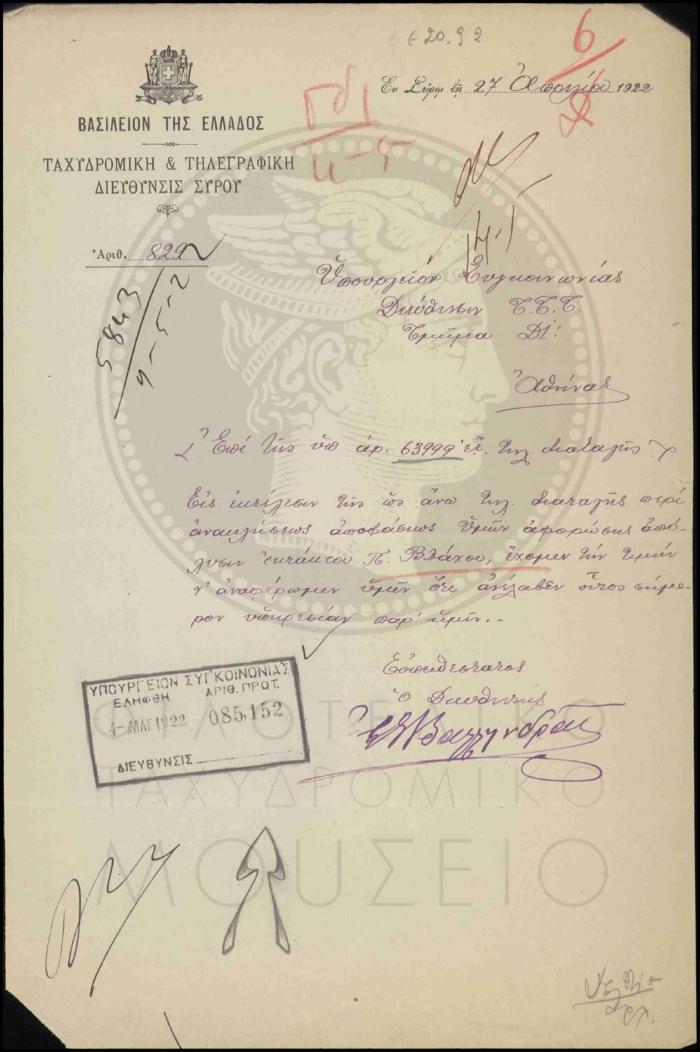 Ε 20.92
6
Εν Σύρω τη 27 Απριλίου 1922
ΒΑΣΙΛΕΙΟΝ ΤΗΣ ΕΛΛΑΔΟΣ
ΤΑΧΥΔΡΟΜΙΚΗ & ΤΗΛΕΓΡΑΦΙΚΗ
ΔΙΕΥΘΥΝΣΙΣ ΣΥΡΟΥ
Ἀριθ. 829
5843
9-5-2
Ὑπουργεῖον Συγκοινωνίας
Διεύθυνσιν Τ.Τ.Τ.
Τμῆμα Δ!
Ἀθήνας
Ἐπί τῆς ὑπ ἀρ. 63999 ἐ.ἔ. τηλ. διαταγῆς
Εἰς ἐκτέλεσιν τῆς ὡς ἄνω τηλ. διαταγῆς περί
ἀνακλήσεως ἀποφάσεως Ὑμῶν ἀφορώσης ἀπό-
λυσιν ἐκτάκτου Π. Βλάχου, ἔχομεν τήν τιμήν
ν' ἀναφέρωμεν ὑμῖν ὅτι ἀνέλαβεν οὗτος σήμε-
ρον ὑπηρεσίαν παρ' ἡμῖν.-
Εὐπειθέστατος
Ὁ Διευθυντής
ΥΠΟΥΡΓΕΙΟΝ ΣΥΓΚΟΙΝΩΝΙΑΣ
ΕΛΗΦΘΗ ΑΡΙΘ. ΠΡΩΤ.
4-ΜΑΪ 1922 085,152
ΔΙΕΥΘΥΝΣΙΣ
ΦΙΛΟΤΕΛΙΚΟ
ΤΑΧΥΔΡΟΜΙΚΟ
ΜΟΥΣΕΙΟ